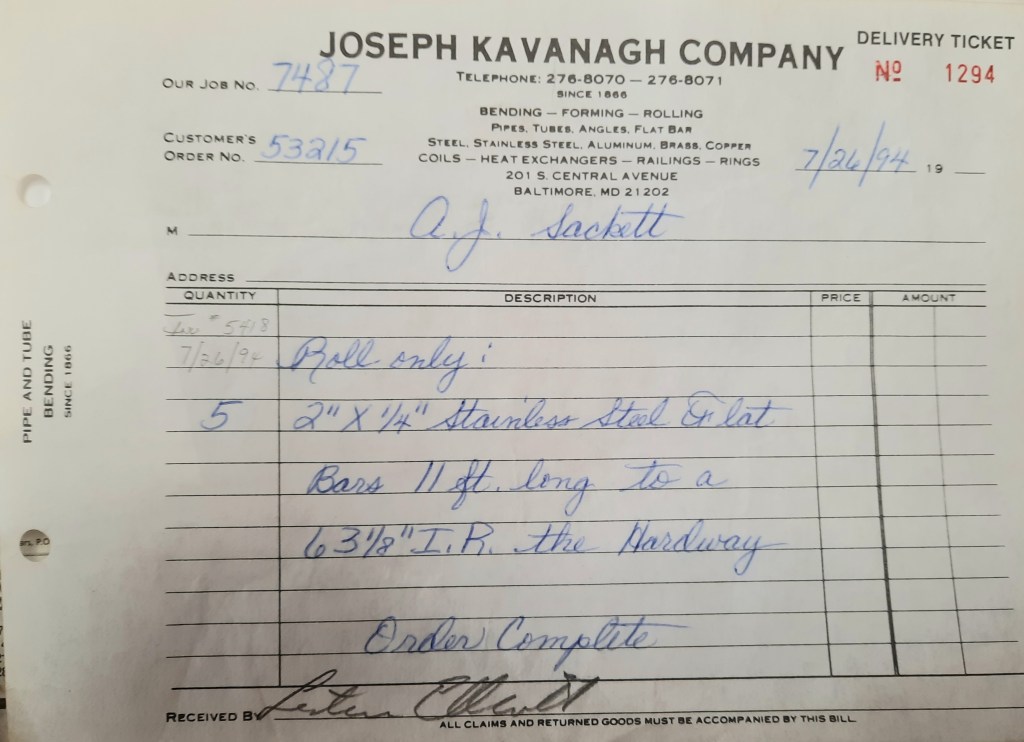 JOSEPH KAVANAGH COMPANY
DELIVERY TICKET
Nº 1294
OUR JOB NO. 7487
TELEPHONE: 276-8070 — 276-8071
SINCE 1866
BENDING — FORMING — ROLLING
PIPES, TUBES, ANGLES, FLAT BAR
CUSTOMER'S
ORDER NO. 53215
STEEL, STAINLESS STEEL, ALUMINUM, BRASS, COPPER
COILS — HEAT EXCHANGERS — RAILINGS — RINGS
7/26/94 19
201 S. CENTRAL AVENUE
BALTIMORE, MD 21202
M A.J. Sackett
ADDRESS
QUANTITY DESCRIPTION PRICE AMOUNT
# 5418
7/26/94 Roll only:
5 2" X 1/4" Stainless Steel Flat
Bars 11 ft. long to a
63 1/8" I.R. the Hardway
Order Complete
RECEIVED BY
ALL CLAIMS AND RETURNED GOODS MUST BE ACCOMPANIED BY THIS BILL.
PIPE AND TUBE
BENDING
SINCE 1866